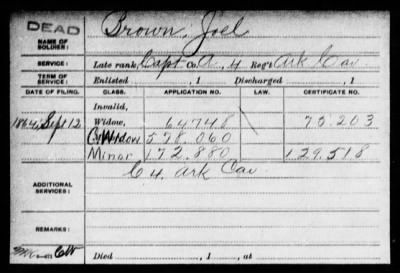 DEAD
NAME OF SOLDIER: Brown, Joel
SERVICE: Late rank, Capt Co. A, 4 Reg't Ark Cav
TERM OF SERVICE: Enlisted , 1 Discharged , 1
DATE OF FILING. CLASS. APPLICATION NO. LAW. CERTIFICATE NO.
Invalid,
1864, Sept 12 Widow, 64748 75.203
C Widow 578.060
Minor 172.880 129.518
ADDITIONAL SERVICES: C 4. Ark Cav
REMARKS:
Died , 1 , at